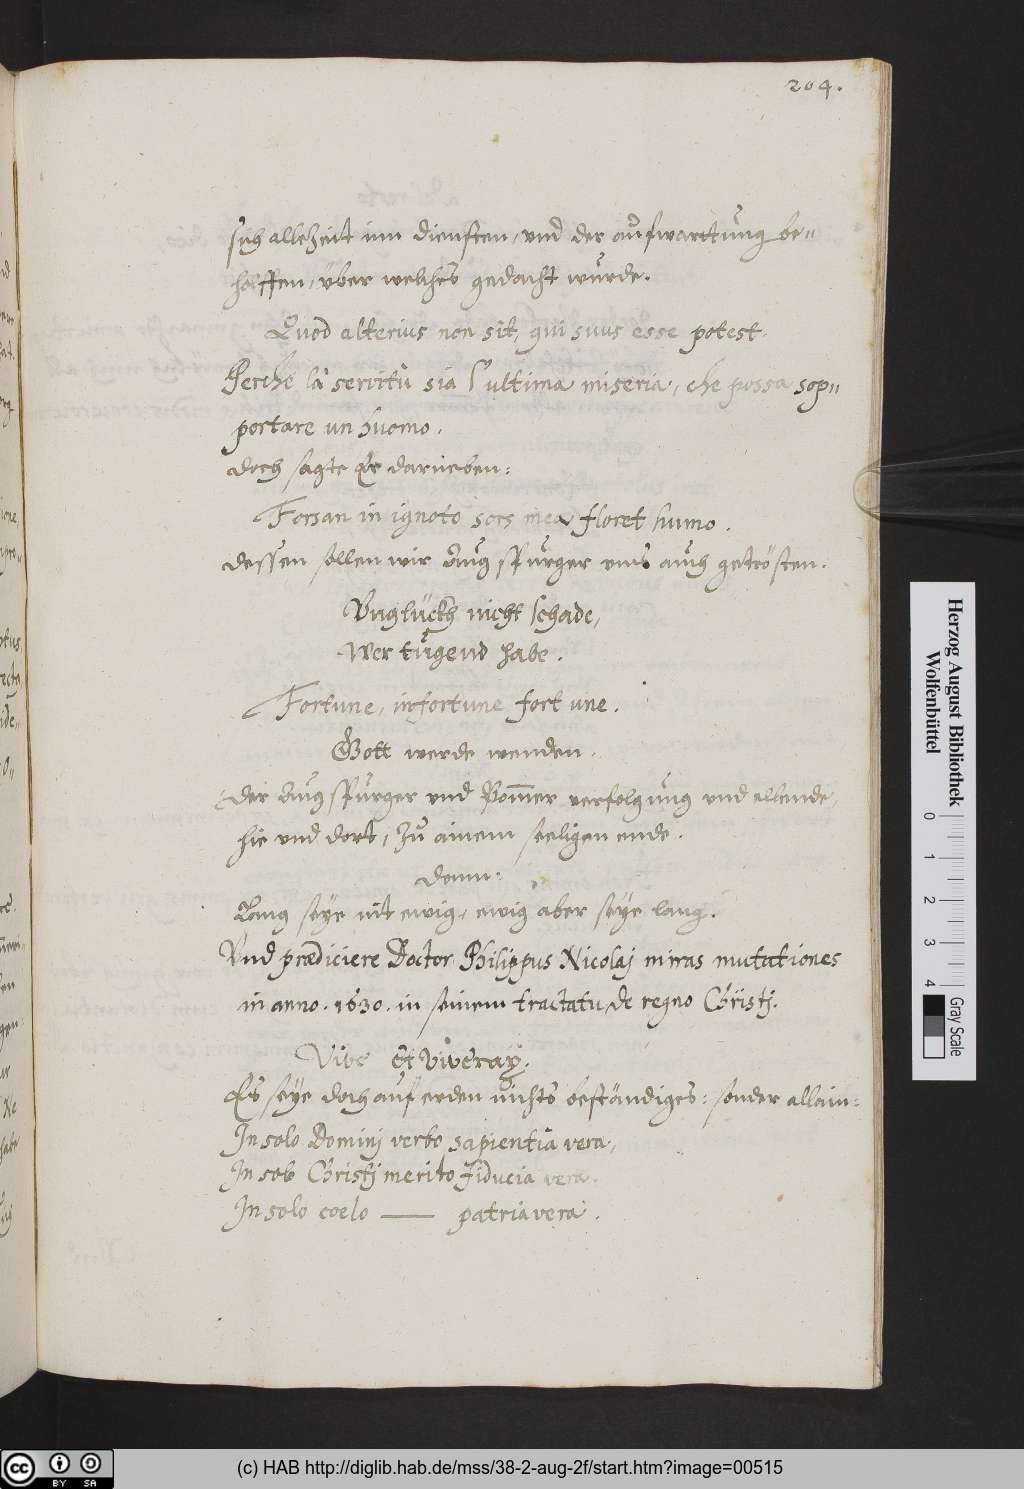 204.
sich allezeit inn diensten, und der aufwarttung be„
holffen, über welches gedacht wurde.
Quod alterius non sit, qui suus esse potest.
Perche la servitù sia l'ultima miseria, che possa sop„
portare un huomo.
doch sagte Er darneben:
Forsan in ignoto sors mea floret humo.
dessen sollen wir Augspurger uns auch getrösten.
Unglückh nicht schade,
Wer tugend habe.
Fortune, infortune fort une.
Gott werde wenden.
der Augspurger und Pom̄er verfolgung und ellende,
hie und dort, zu ainem seeligen ende.
denn:
Lang seye nit ewig, ewig aber seye lang.
Und prædiciere Doctor Philippus Nicolaj miras mutationes
in anno. 1630. in seinem tractatu, de regno Christj.
Vive et Viveray.
Es seye doch auf erden nichts beständiges: sonder allain:
In solo Dominj verbo sapientia vera,
In solo Christj merito fiducia vera.
In solo coelo —— patria vera.
Herzog August Bibliothek
Wolfenbüttel
0 1 2 3 4
Gray Scale
(c) HAB http://diglib.hab.de/mss/38-2-aug-2f/start.htm?image=00515
cc BY SA